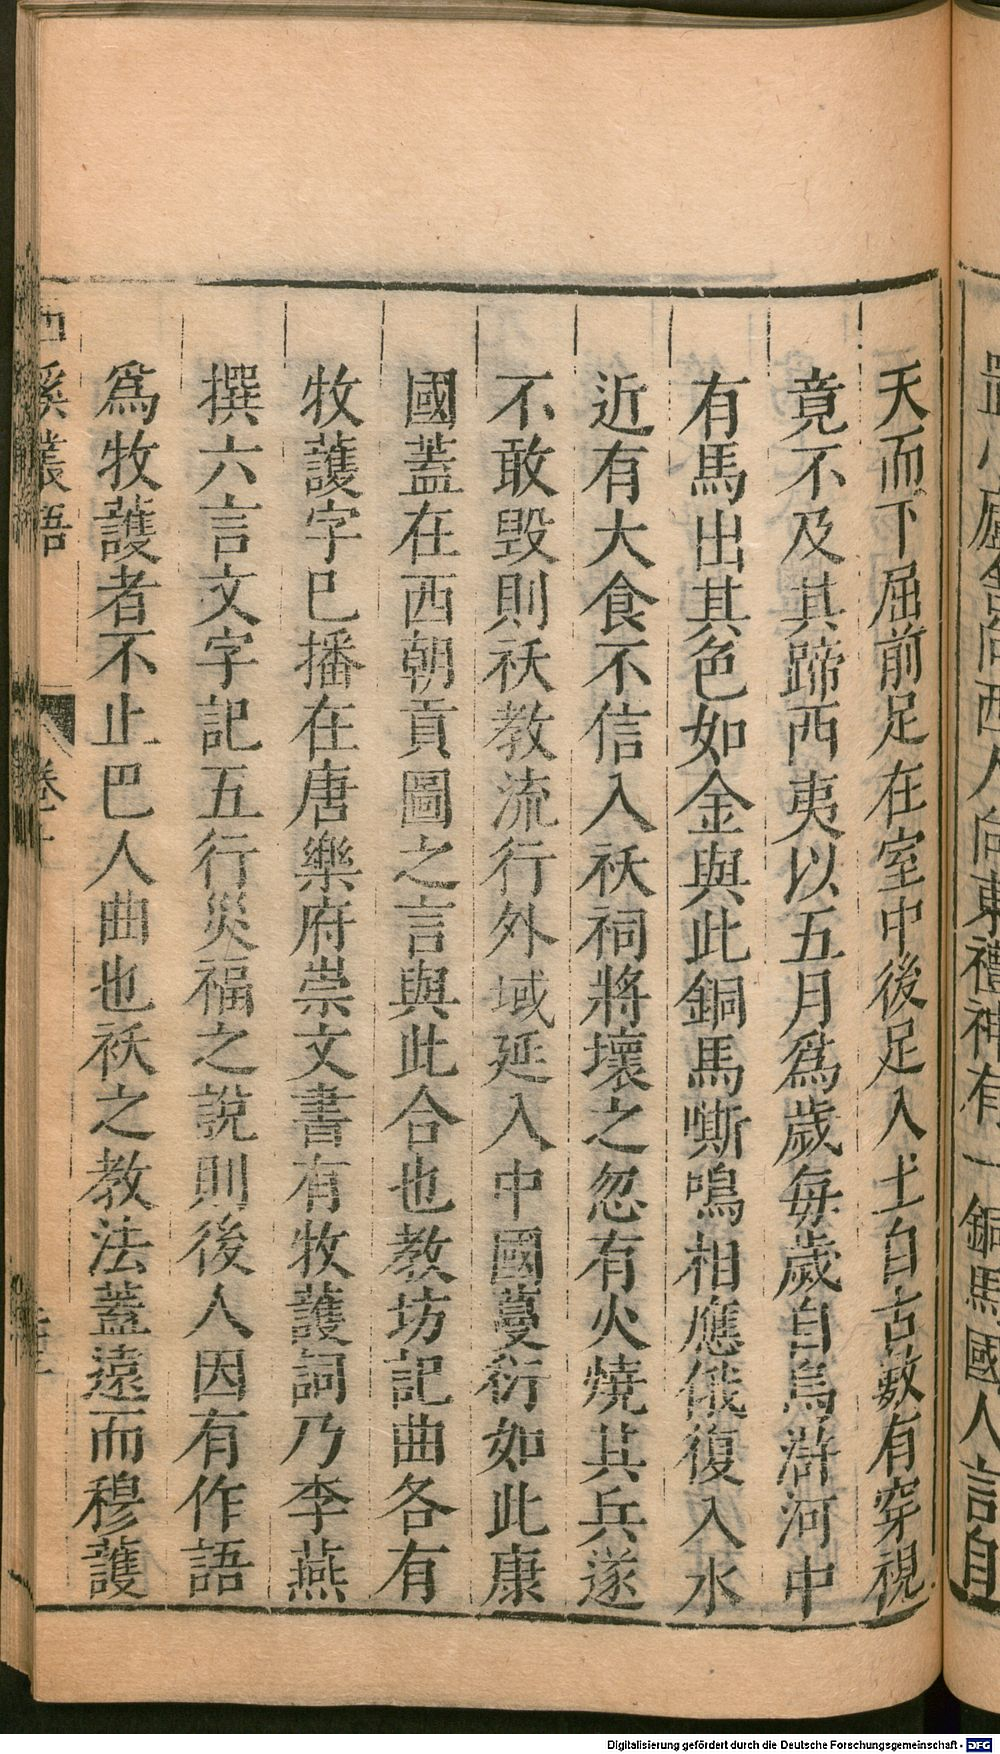 天而下屈前足在室中後足入土自古數有穿視
竟不及其蹄西夷以五月爲歲每歲自烏滸河中
有馬出其色如金與此銅馬嘶鳴相應俄復入水
近有大食不信入祅祠將壞之忽有火燒其兵遂
不敢毀則祅教流行外域延入中國蔓衍如此康
國蓋在西朝貢圖之言與此合也教坊記曲各有
牧護字巳播在唐樂府崇文書有牧護詞乃李燕
撰六言文字記五行災福之說則後人因有作語
爲牧護者不止巴人曲也祅之教法蓋遠而穆護
溪叢語
卷
西人向東禮神有一銅馬國人言自
Digitalisierung gefördert durch die Deutsche Forschungsgemeinschaft - DFG